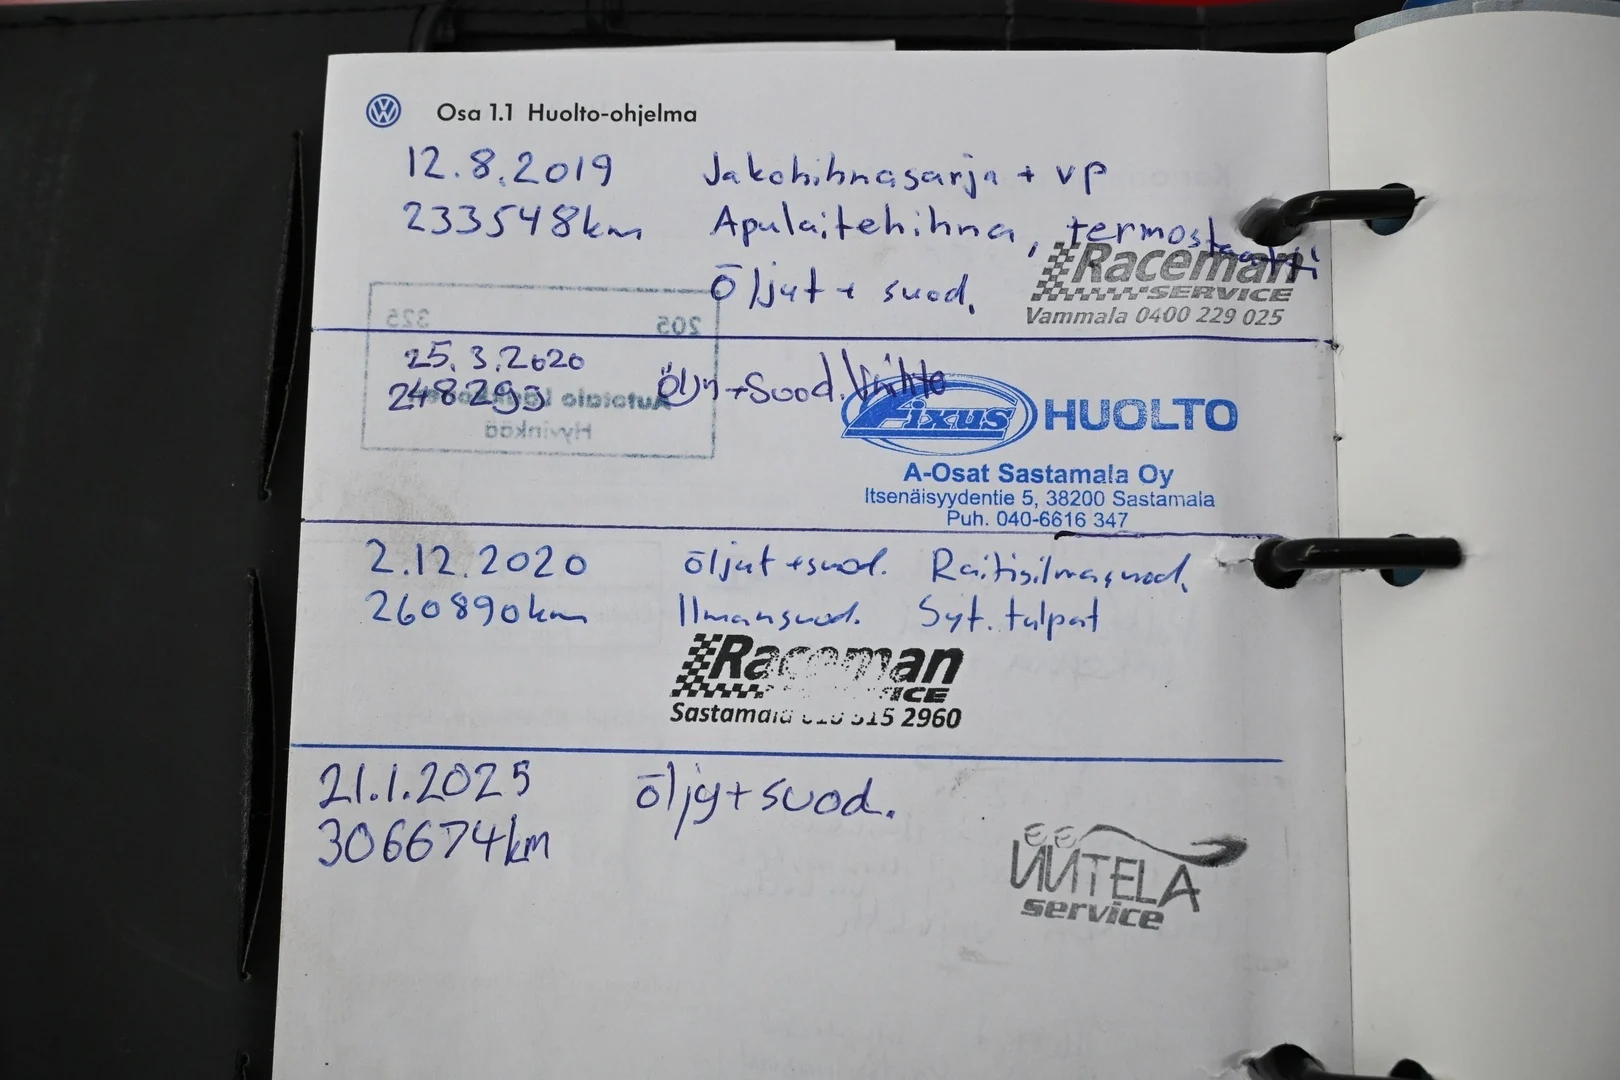 Osa 1.1 Huolto-ohjelma
12.8.2019 Jakohihnasarja + vp
233548km Apulaitehihna, termostaatti
Öljyt + suod.
Raceman
SERVICE
Vammala 0400 229 025
325 205
Hyvinkää
25.3.2020
248299 Öljyn + Suod. Vaihto
Fixus HUOLTO
A-Osat Sastamala Oy
Itsenäisyydentie 5, 38200 Sastamala
Puh. 040-6616 347
2.12.2020 Öljyt + suod. Raitisilmasuod.
260890km Ilmansuod. Syt. tulpat
Raceman
SERVICE
Sastamala 2960
21.1.2025 Öljy + suod.
306674km
service